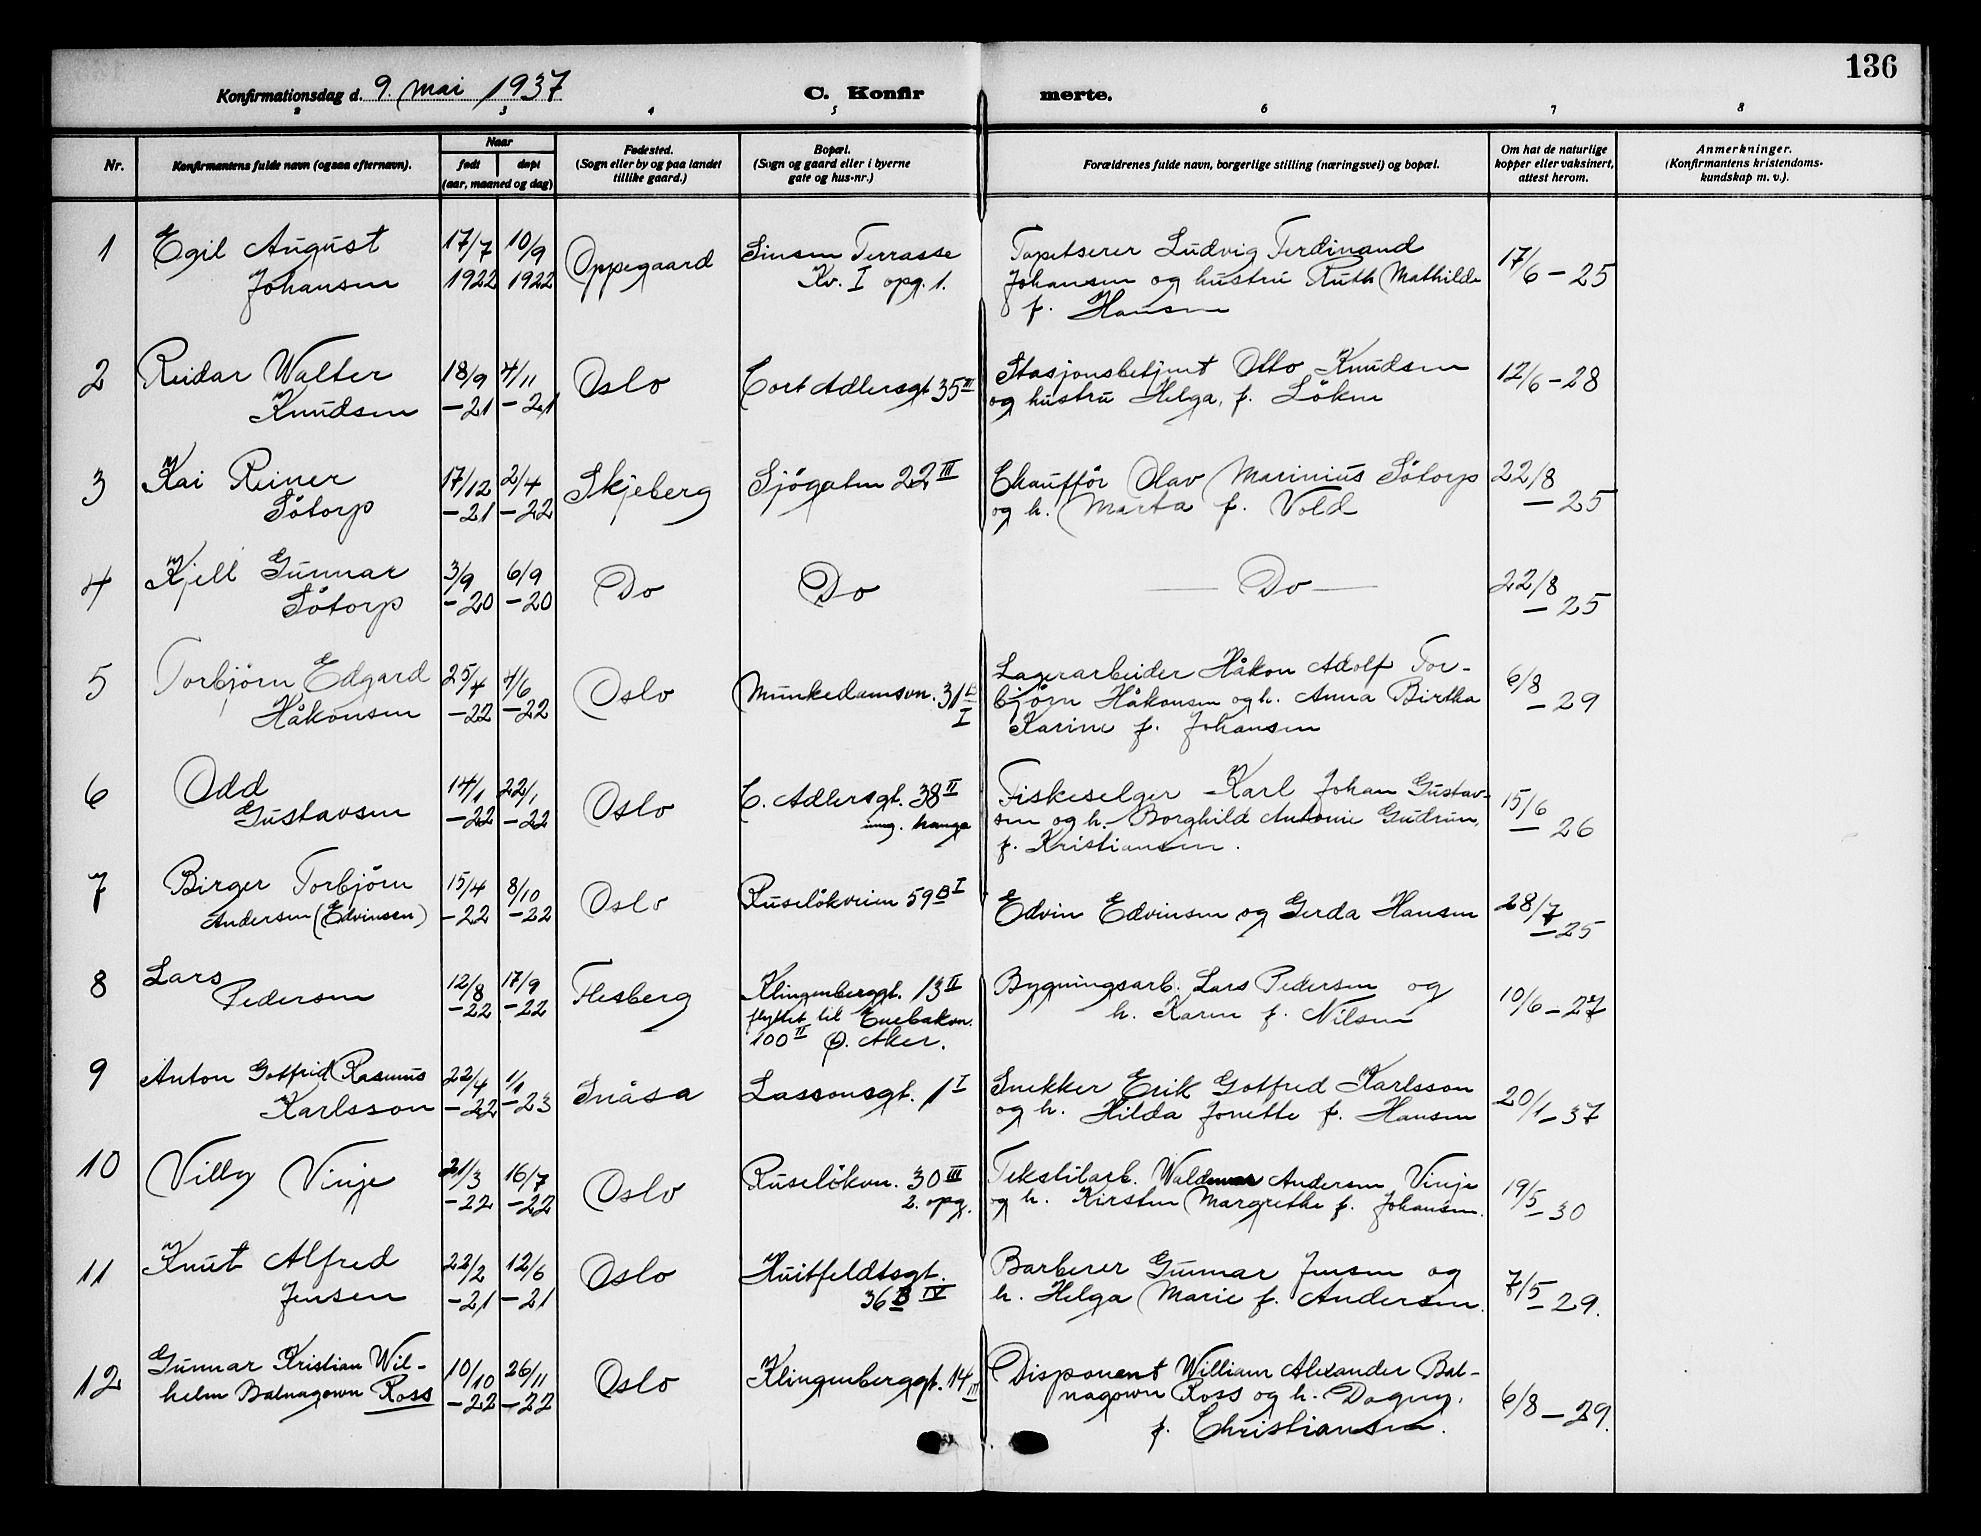 136
Konfirmationsdag d. 9. mai 1937 C. Konfirmerte.
2 3 4 5 6 7 8
Nr.
Konfirmantens fulde navn (ogsaa efternavn).
Naar
født døpt
(aar, maaned og dag)
Fødested.
(Sogn eller by og paa landet
tillike gaard.)
Bopæl.
(Sogn og gaard eller i byerne
gate og hus-nr.)
Forældrenes fulde navn, borgerlige stilling (næringsvei) og bopæl.
Om hat de naturlige
kopper eller vaksinert,
attest herom.
Anmerkninger.
(Konfirmantens kristendoms-
kundskap m. v.).
1 Egil August 17/7 10/9 Oppegaard Sinsen Terrasse Tapetserer Ludvig Ferdinand 17/6 - 25
Johansen 1922 1922 Kv. I opg. 1. Johansen og hustru Ruth Mathilde
f. Hansen
2 Reidar Walter 18/9 4/11 Oslo Cort Adlersgt 35 III Stasjonsbetjent Otto Knudsen 12/6 - 28
Knudsen - 21 - 21 og hustru Helga, f. Løken
3 Kai Reiner 17/12 2/4 Skjeberg Sjøgaten 22 III Chauffør Olav Marinius Søtorp 22/8
Søtorp - 21 - 22 og h. Marta f. Vold - 25
4 Kjell Gunnar 3/9 6/9 Do Do — Do — 22/8
Søtorp - 20 - 20 - 25
5 Torbjørn Edgard 25/4 4/6 Oslo Munkedamsvn. 31 B Lagerarbeider Håkon Adolf Tor- 6/8
Håkonsen - 22 - 22 I bjørn Håkonsen og h. Anna Birtha - 29
Karine f. Johansen
6 Odd 14/1 22/1 Oslo C. Adlersgt. 38 II Fiskeselger Karl Johan Gustav- 15/6
Gustavsen - 22 - 22 inng. Hauge sen og h. Borghild Antonie Gudrun, - 26
f. Kristiansen.
7 Birger Torbjørn 15/4 8/10 Oslo Ruseløkveien 59 B I Edvin Edvinsen og Gerda Hansen 28/7
Andersen (Edvinsen) - 22 - 22 - 25
8 Lars 12/8 17/9 Flesberg Klingenberggt. 13 II Bygningsarb. Lars Pedersen og 10/6 - 27
Pedersen - 22 - 22 flyttet til Enebakvn. h. Karen f. Nilsen
100 II Ø. Aker.
9 Anton Gotfrid Rasmus 22/4 1/1 Snåsa Lassonsgt. 1 I Snekker Erik Gotfred Karlsson 20/1 - 37
Karlsson - 22 - 23 og h. Hilda Jonette f. Hansen
10 Villy Vinje 21/3 16/7 Oslo Ruseløkvn. 30 III Tekstilarb. Waldemar Andersen Vinje 19/5
- 22 - 22 2. opg. og h. Kirsten Margrethe f. Johansen. - 30
11 Knut Alfred 22/2 12/6 Oslo Huitfeldtsgt. Barberer Gunnar Jensen og 7/5
Jensen - 21 - 21 36 B IV h. Helga Marie f. Andersen. - 29.
12 Gunnar Kristian Wil- 10/10 26/11 Oslo Klingenberggt. 14 III Disponent William Alexander Bal- 6/8 - 29.
helm Balnagown Ross - 22 - 22 nagown Ross og h. Dagny,
f. Christiansen.